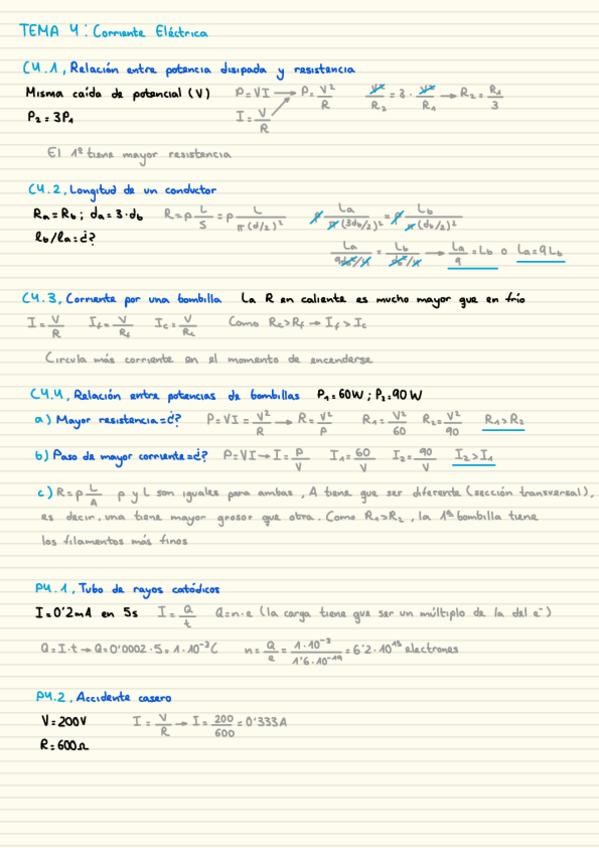 TEMA 4: Corriente Eléctrica
C4.1, Relación entre potencia disipada y resistencia
Misma caída de potencial (V) P=VI → P=V²/R V²/R₂ = 3·V²/R₁ → R₂=R₁/3
P₂=3P₁ I=V/R
El 1º tiene mayor resistencia
C4.2, Longitud de un conductor
Ra=Rb; da=3·db R=ρ L/S = ρ L/π(d/2)² ρ La/π(3db/2)² = ρ Lb/π(db/2)²
lb/la=¿?
La/9db²/4 = Lb/db²/4 → La/9=Lb o La=9Lb
C4.3, Corriente por una bombilla La R en caliente es mucho mayor que en frío
I=V/R If=V/Rf Ic=V/Rc Como Rc>Rf → If>Ic
Circula más corriente en el momento de encenderse
C4.4, Relación entre potencias de bombillas P₁=60W; P₂=90W
a) Mayor resistencia=¿? P=VI=V²/R → R=V²/P R₁=V²/60 R₂=V²/90 R₁>R₂
b) Paso de mayor corriente=¿? P=VI→I=P/V I₁=60/V I₂=90/V I₂>I₁
c) R=ρ L/A ρ y L son iguales para ambas, A tiene que ser diferente (sección transversal),
es decir, una tiene mayor grosor que otra. Como R₁>R₂, la 1ª bombilla tiene
los filamentos más finos
P4.1, Tubo de rayos catódicos
I=0'2mA en 5s I=Q/t Q=n·e (la carga tiene que ser un múltiplo de la del e⁻)
Q=I·t→Q=0'0002·5=1·10⁻³C n=Q/e=1·10⁻³/1'6·10⁻¹⁹=6'2·10¹⁵ electrones
P4.2, Accidente casero
V=200V I=V/R → I=200/600=0'333A
R=600Ω